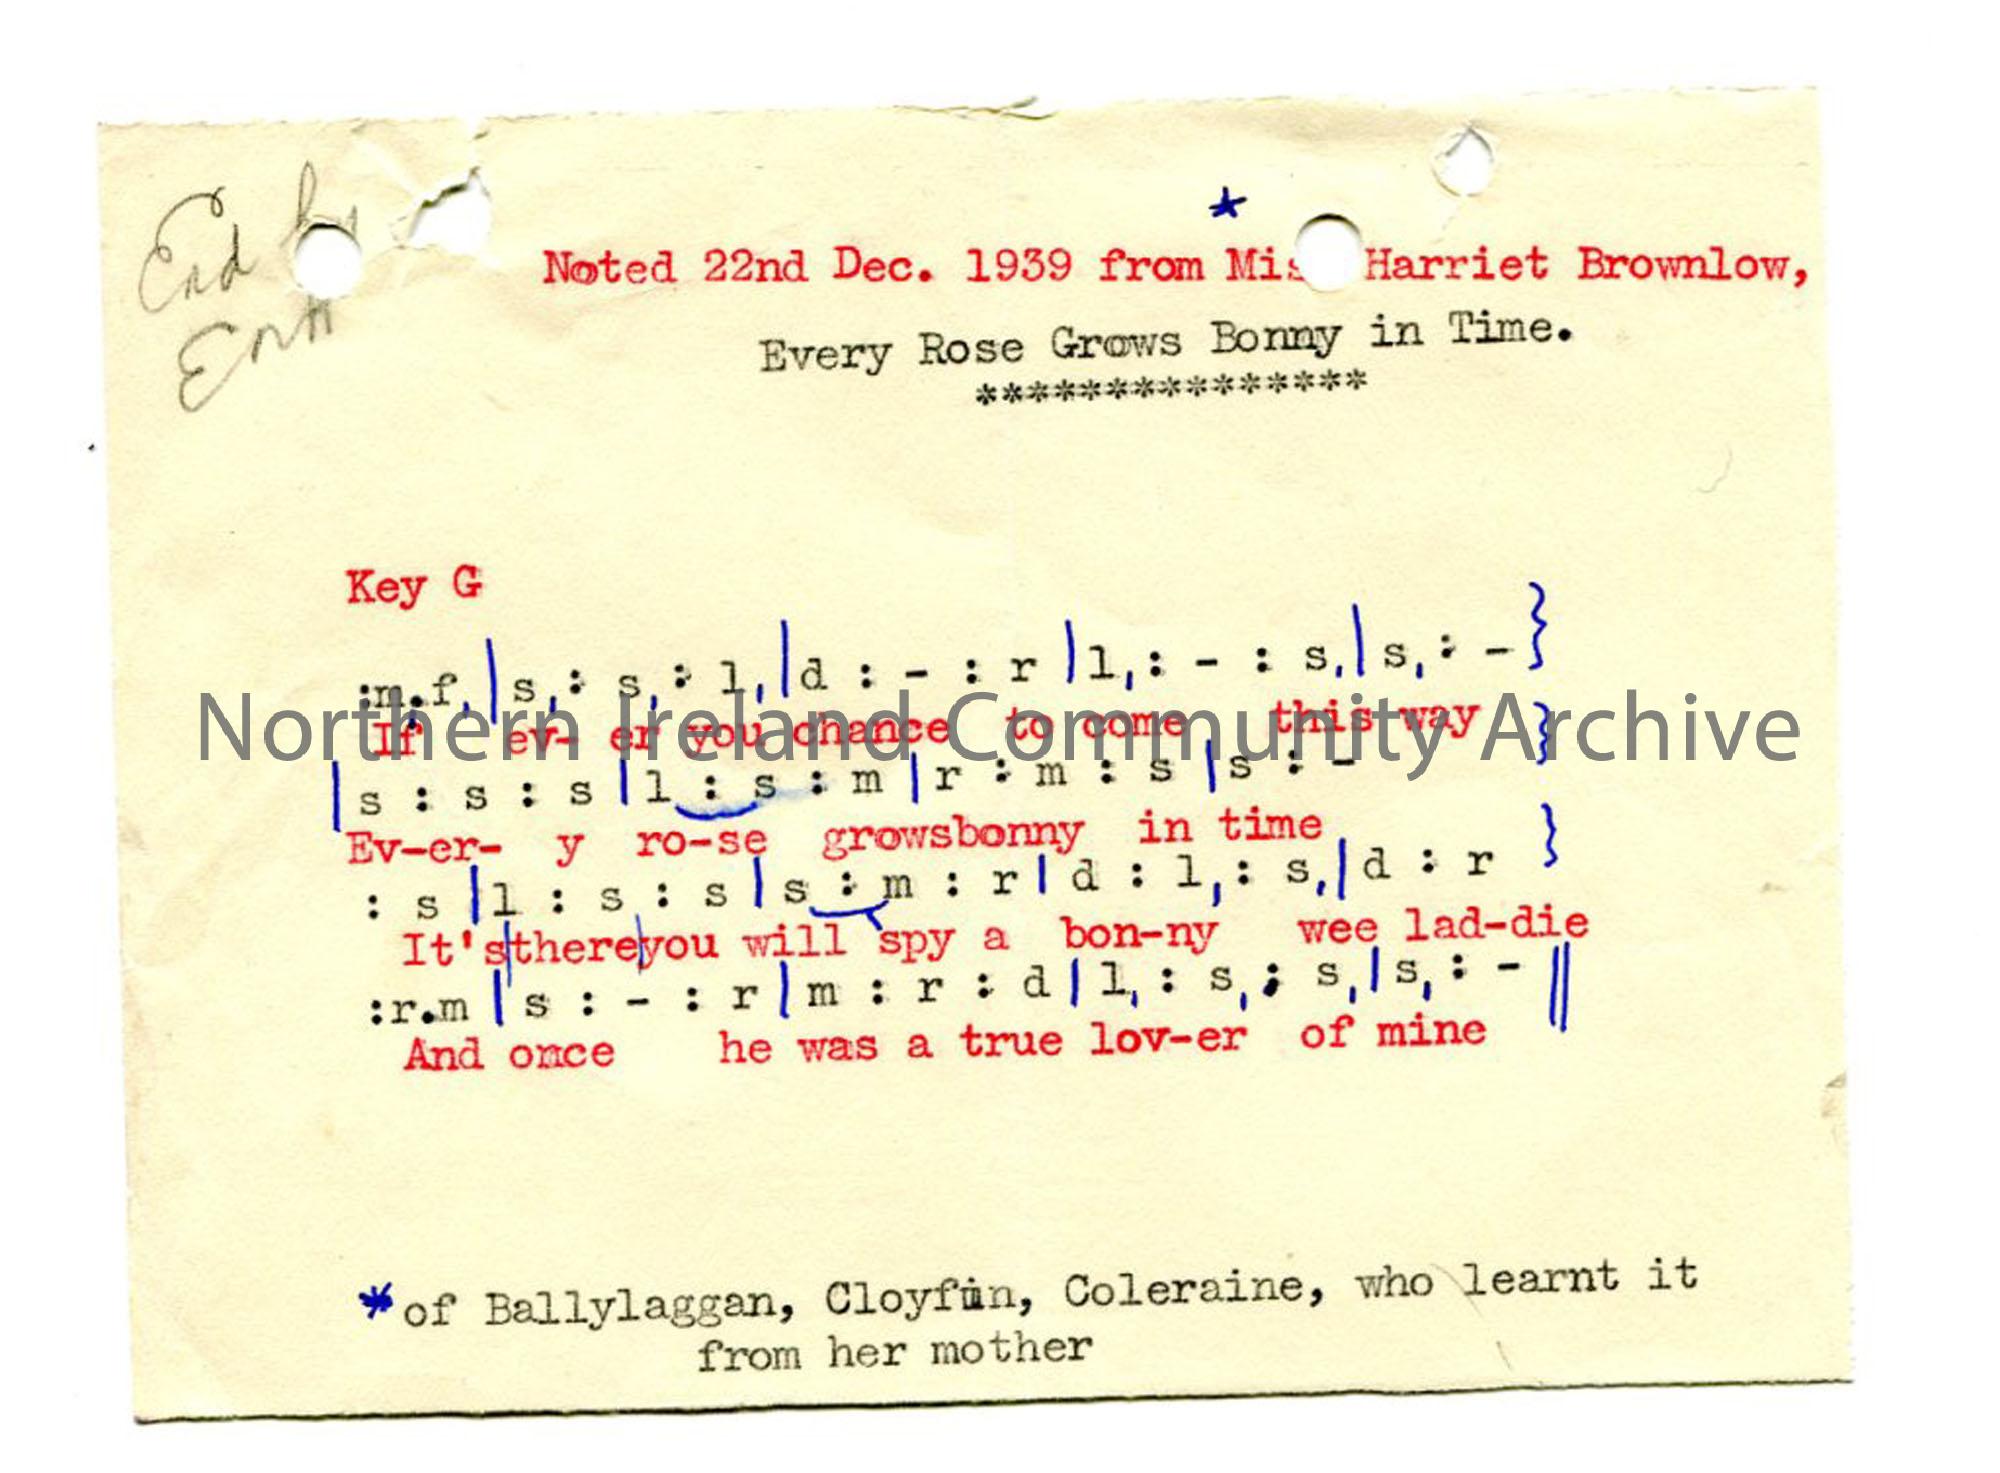 End by
*
Noted 22nd Dec. 1939 from Mis Harriet Brownlow,
Every Rose Grows Bonny in Time.
***************
Key G
:m,.f,|s,: s,: l,|d : - : r |l,: - : s,|s,: - }
If ev- er you chance to come this way }
|s : s : s |l : s : m |r : m : s |s : -
Ev-er- y ro-se growsbonny in time }
: s |l : s : s |s : m : r | d : l,: s,|d : r
It's|there|you will spy a bon-ny wee lad-die
:r.m |s : - : r |m : r : d |l,: s,: s,|s,: - ||
And once he was a true lov-er of mine
Northern Ireland Community Archive
* of Ballylaggan, Cloyfin, Coleraine, who learnt it
from her mother